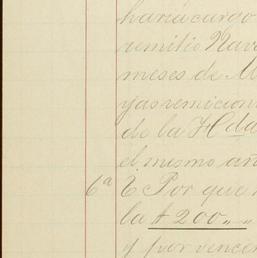 haria cargo
remitio Nav
meses de M
yas remicion
de la Hda
el mismo añ
6a Por que
la $200,,
y por vencer